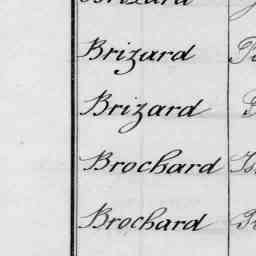 Brizard
Brizard
Brizard
Brochard
Brochard